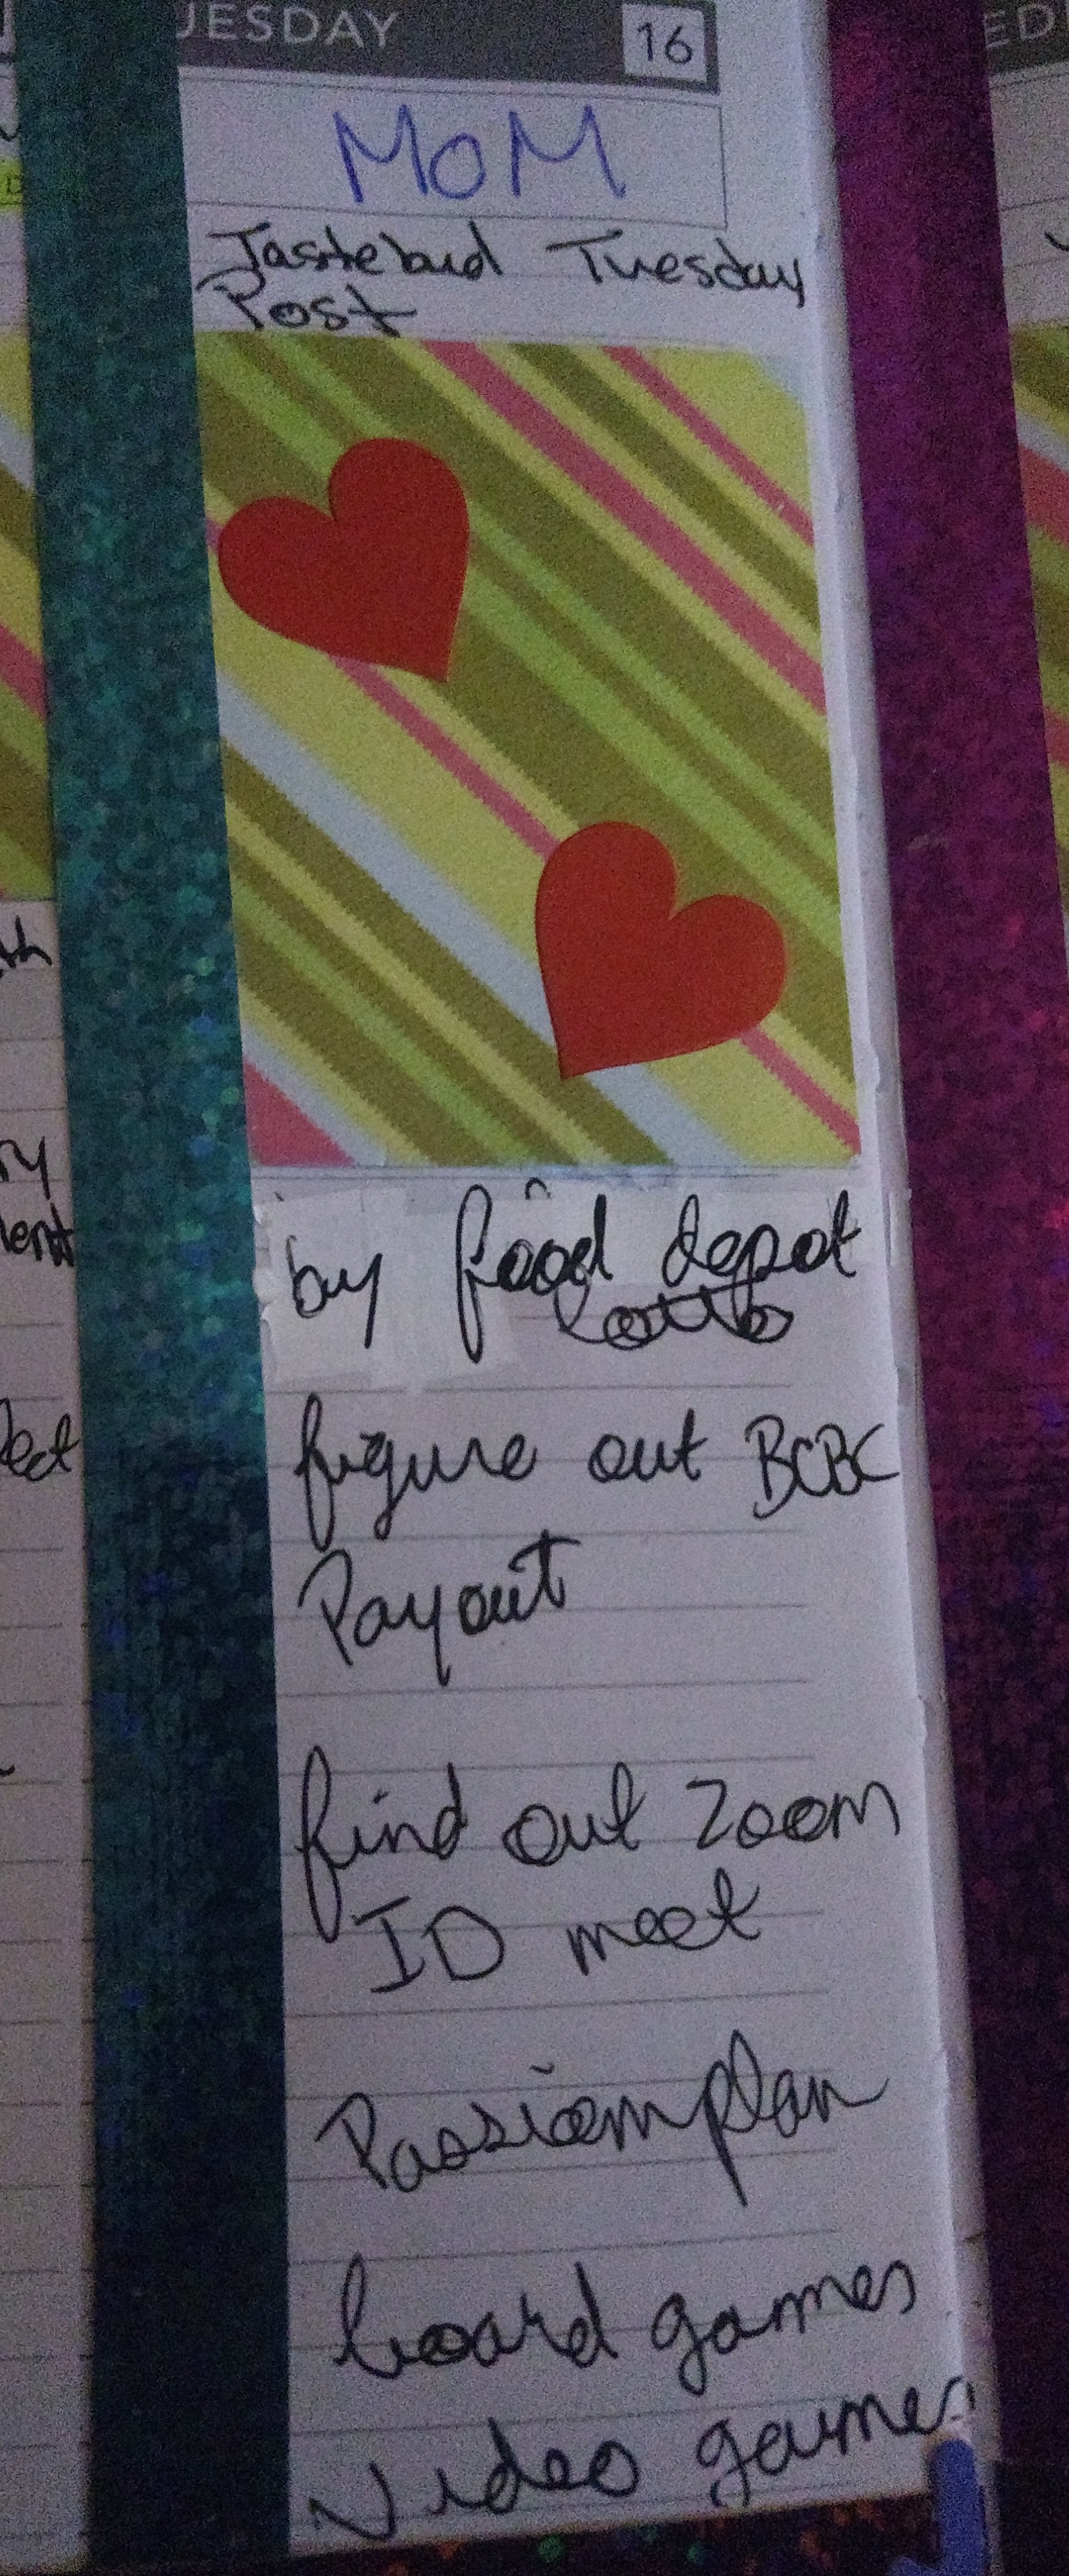 UESDAY 16
MOM
Tastebud Tuesday
Post
by food depot
Lotto
figure out BCBC
Payout
find out Zoom
ID meet
Passion plan
board games
video games